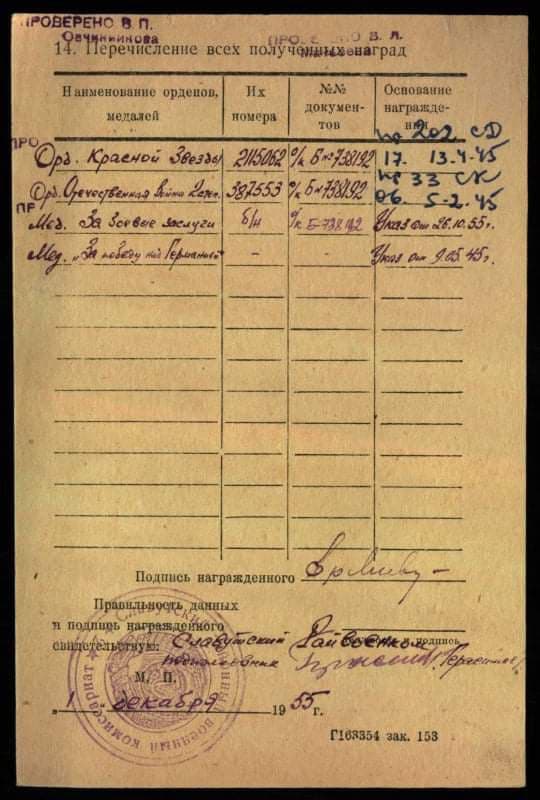 ПРОВЕРЕНО В. П.
Овчинникова
14. Перечисление всех полученных наград
Наименование орденов, медалей
Их номера
№№ документов
Основание награждения
Орд. Красной Звезды 2115062 о/к Б № 738192 пр 202 СД
17. 13.4.45
Орд. Отечественная Война 2 степ. 387553 о/к Б № 738192 пр 33 СК
06. 5-2.45
Мед. За боевые заслуги б/н о/к Б-738192 Указ от 26.10.55г.
Мед. „За победу над Германией" - - Указ от 9.05.45г.
Подпись награжденного
Правильность данных
и подпись награжденного
свидетельствую: Славутский Райвоенком
подполковник Герасимов
М. П.
„ 1 " декабря 1955 г.
Г163354 зак. 153